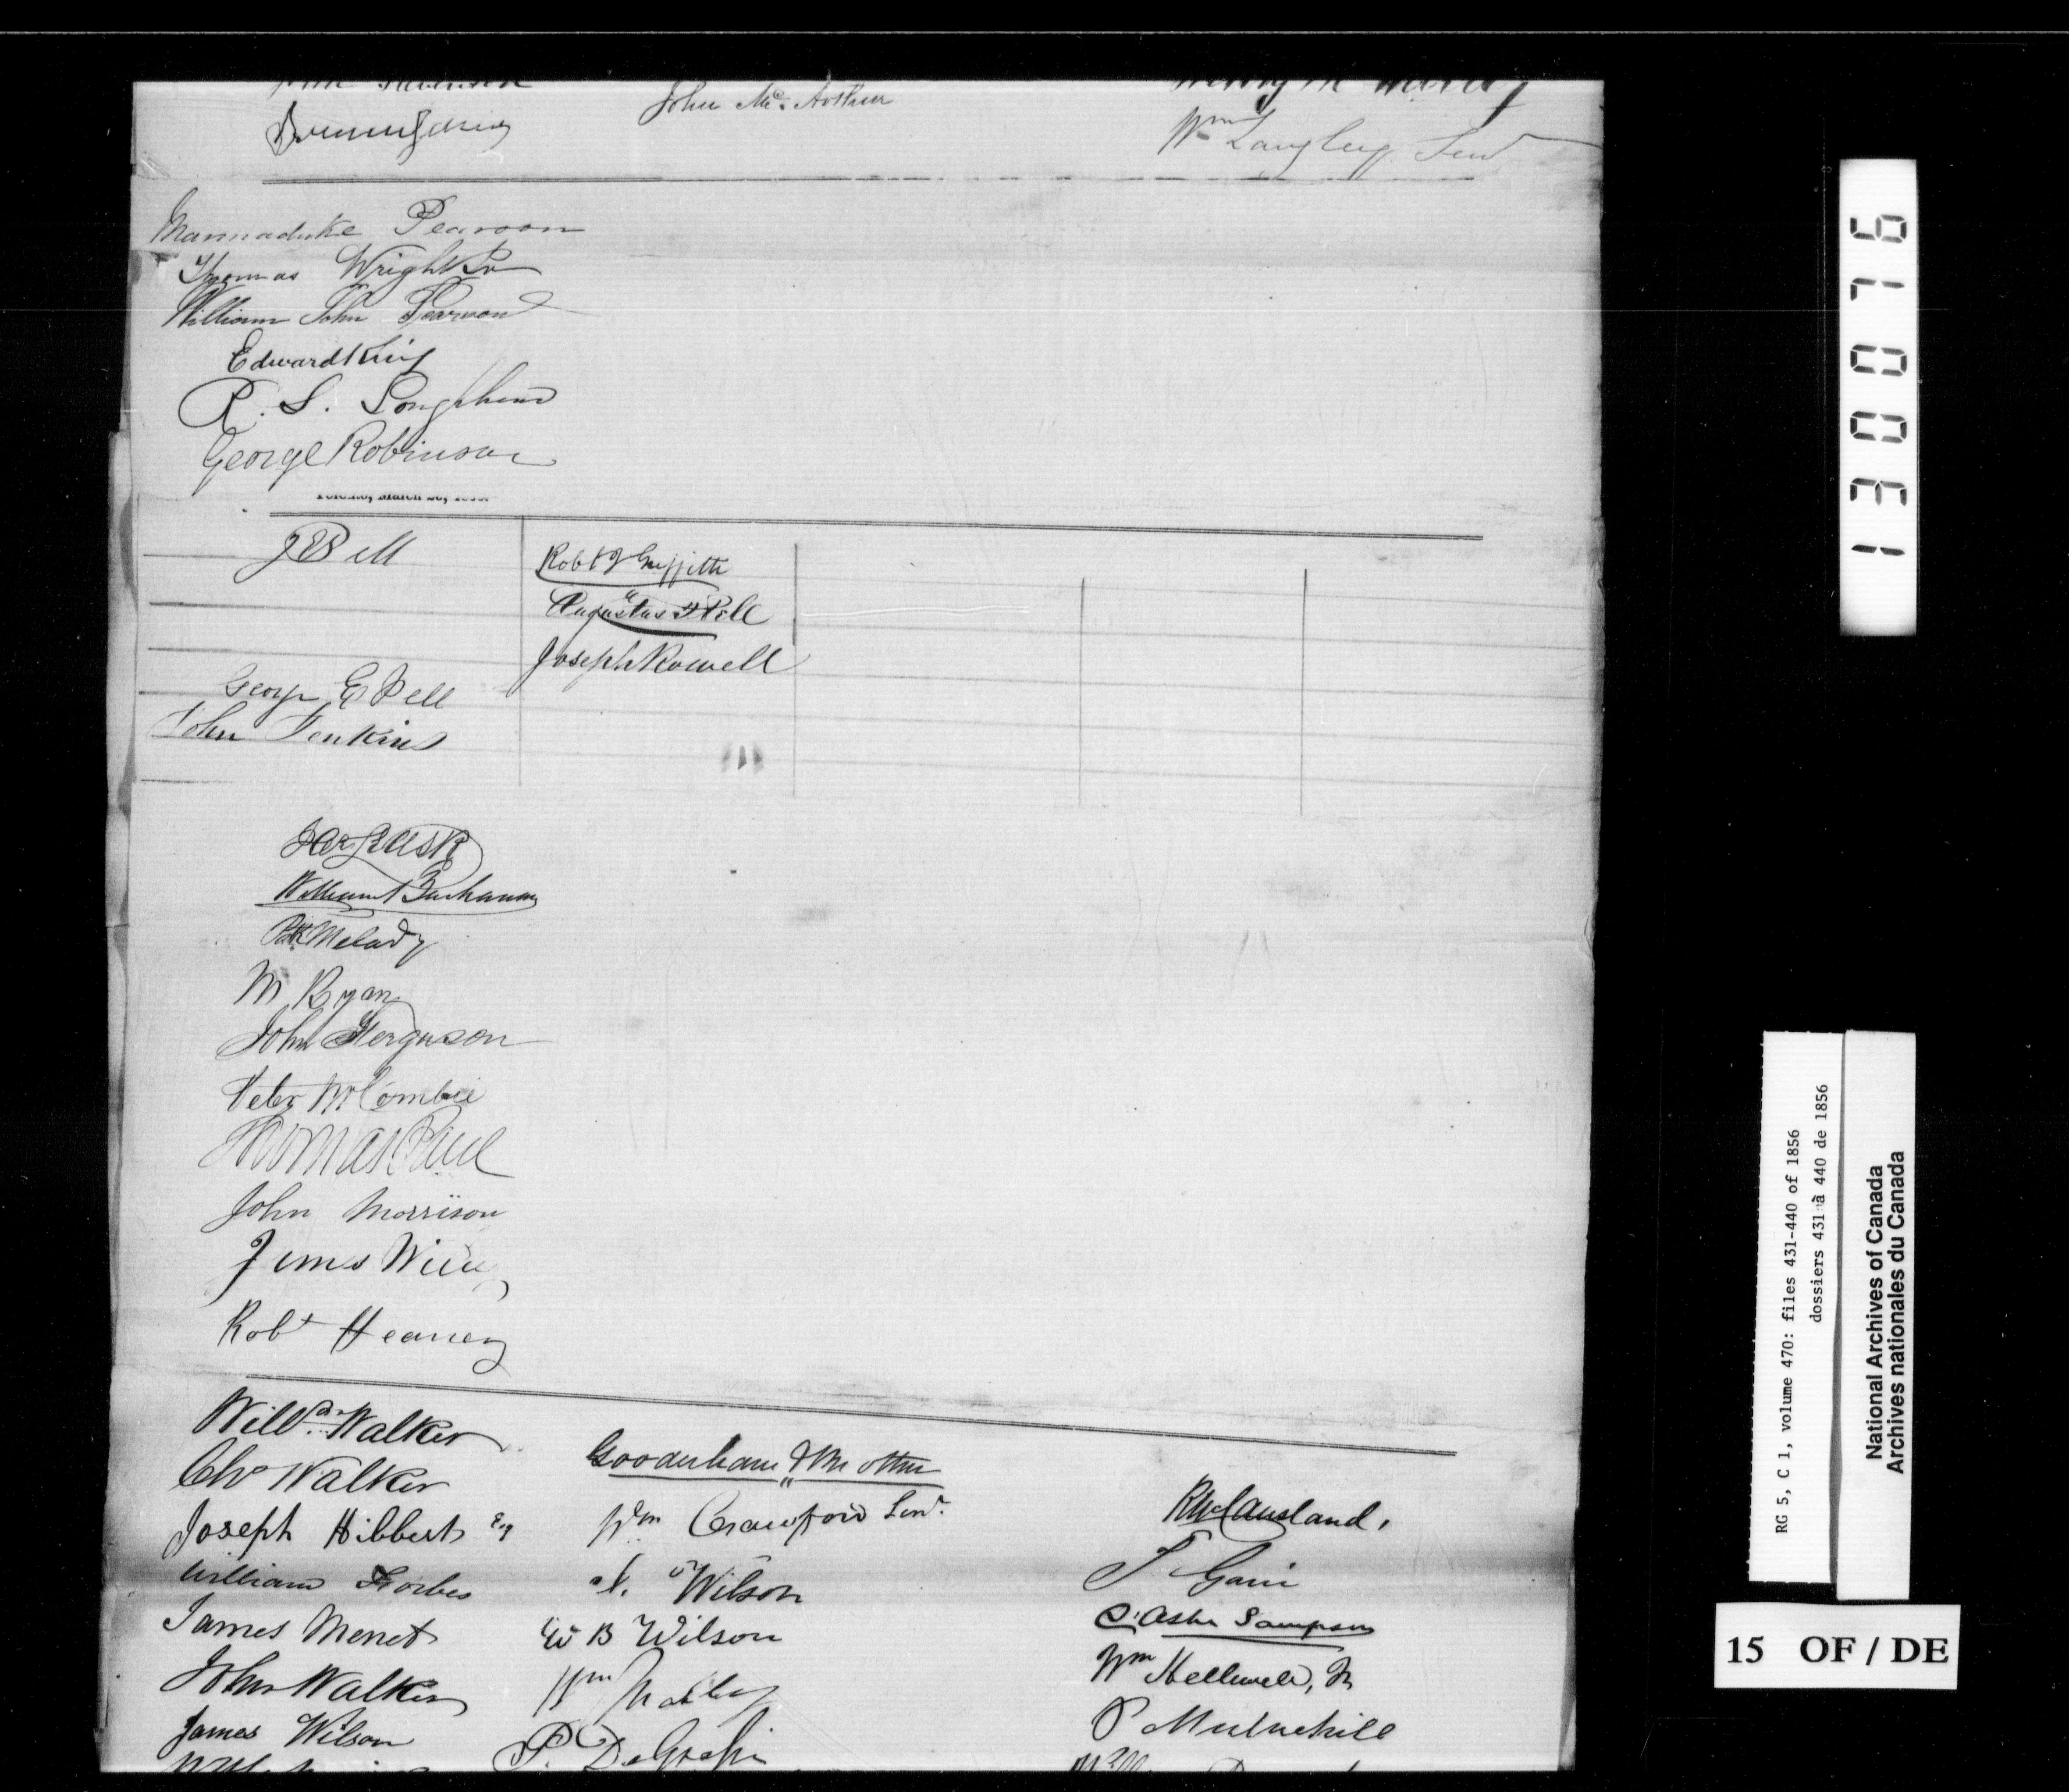 John Mc. Arthur
Wm Langley Senr
Marmaduke Pearson
Thomas Wright Sr
William John Pearson
Edward King
R. S.
George Robinson
Toronto, March
J Pell
Robt J Griffith
Augustus Pell
Joseph Rowell
George E Pell
John Jenkins
William Buchanan
Pk Melady
M Ryan
John Ferguson
Peter McCombie
Thomas Paul
John Morrison
James
Robt Heaney
Willm. Walker
Chs Walker
Joseph Hibbert Esq
William Forbes
James Menet
John Walker
James Wilson
Gooderham &
Wm Crawford Senr.
A. Wilson
W B Wilson
Wm
P. DeGrassi
R McCausland.
T Gain
D'Ashe Sampson
Wm Helliwell, Jr
P Mulvehill
1300716
RG 5, C 1, volume 470: files 431-440 of 1856
dossiers 431 à 440 de 1856
National Archives of Canada
Archives nationales du Canada
15 OF / DE